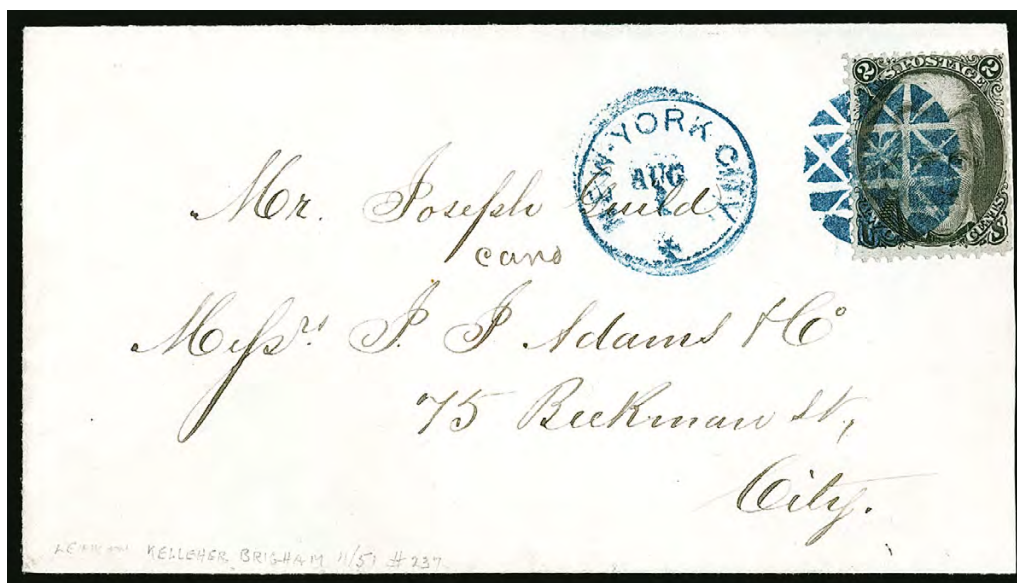 2 U.S. POSTAGE 2
NEW-YORK CITY
AUG
Mr. Joseph Guild
care
Messrs. J. J. Adams & Co
75 Beekman St,
City.
CENTS
KELLEHER BRIGHAM 11/51 # 237